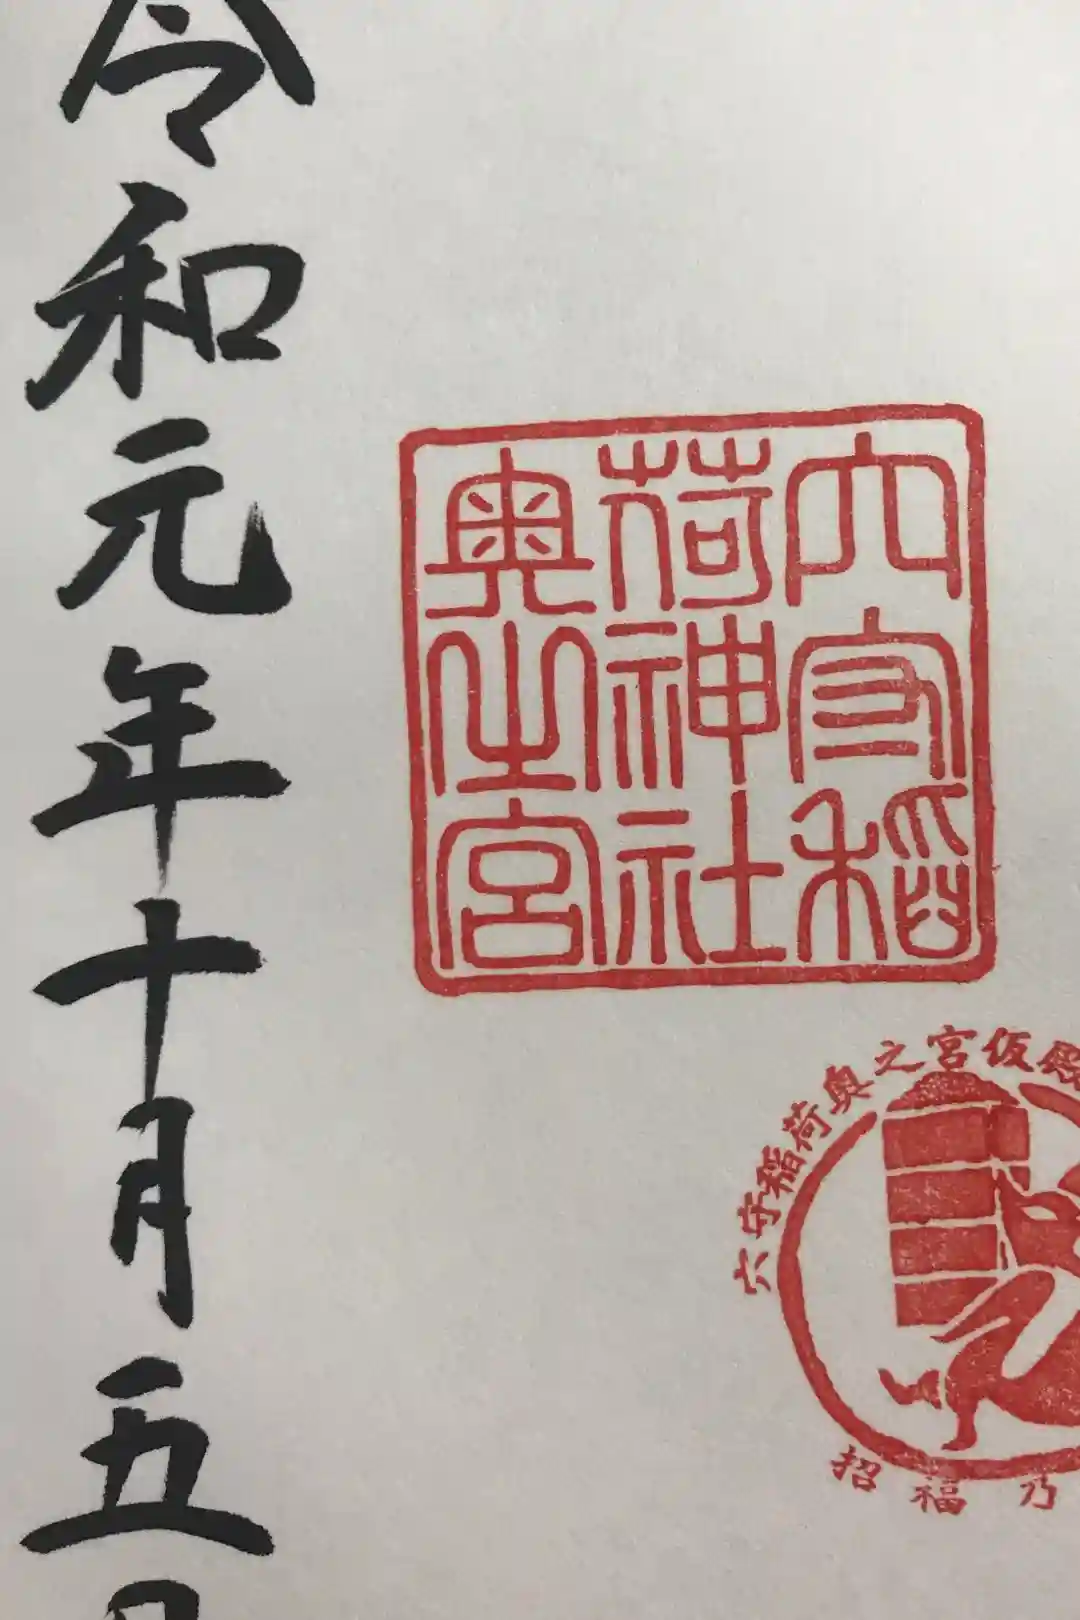 穴守稲
荷神社
奥之宮
令和元年十月五日
穴守稲荷奥之宮仮殿
招福乃